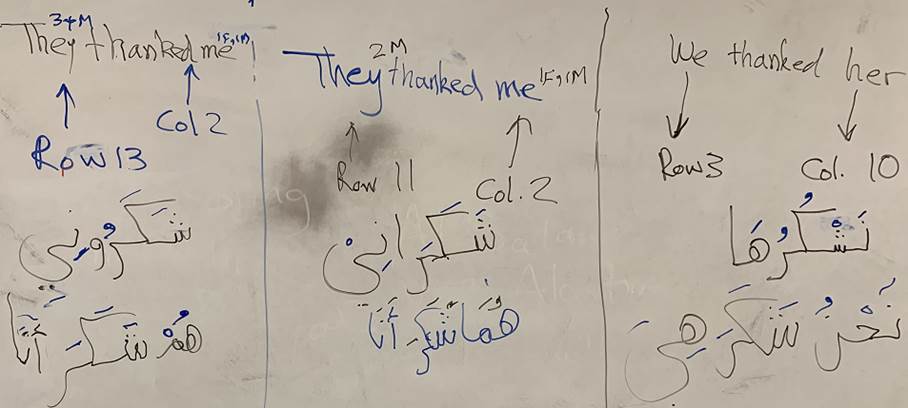 3+M
They thanked me 1F,1M
Row 13
Col 2
شَكَرُونِي
هُمْ شَكَرَ أَنَا
2M
They thanked me 1F,1M
Row 11
Col. 2
شَكَرَانِيْ
هُمَا شَكَرَ أَنَا
We thanked her
Row 3
Col. 10
نَشْكُرُهَا
نَحْنُ شَكَرَ هِيَ